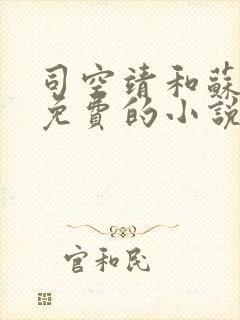 司空靖和蘇
免費的小說
官和民